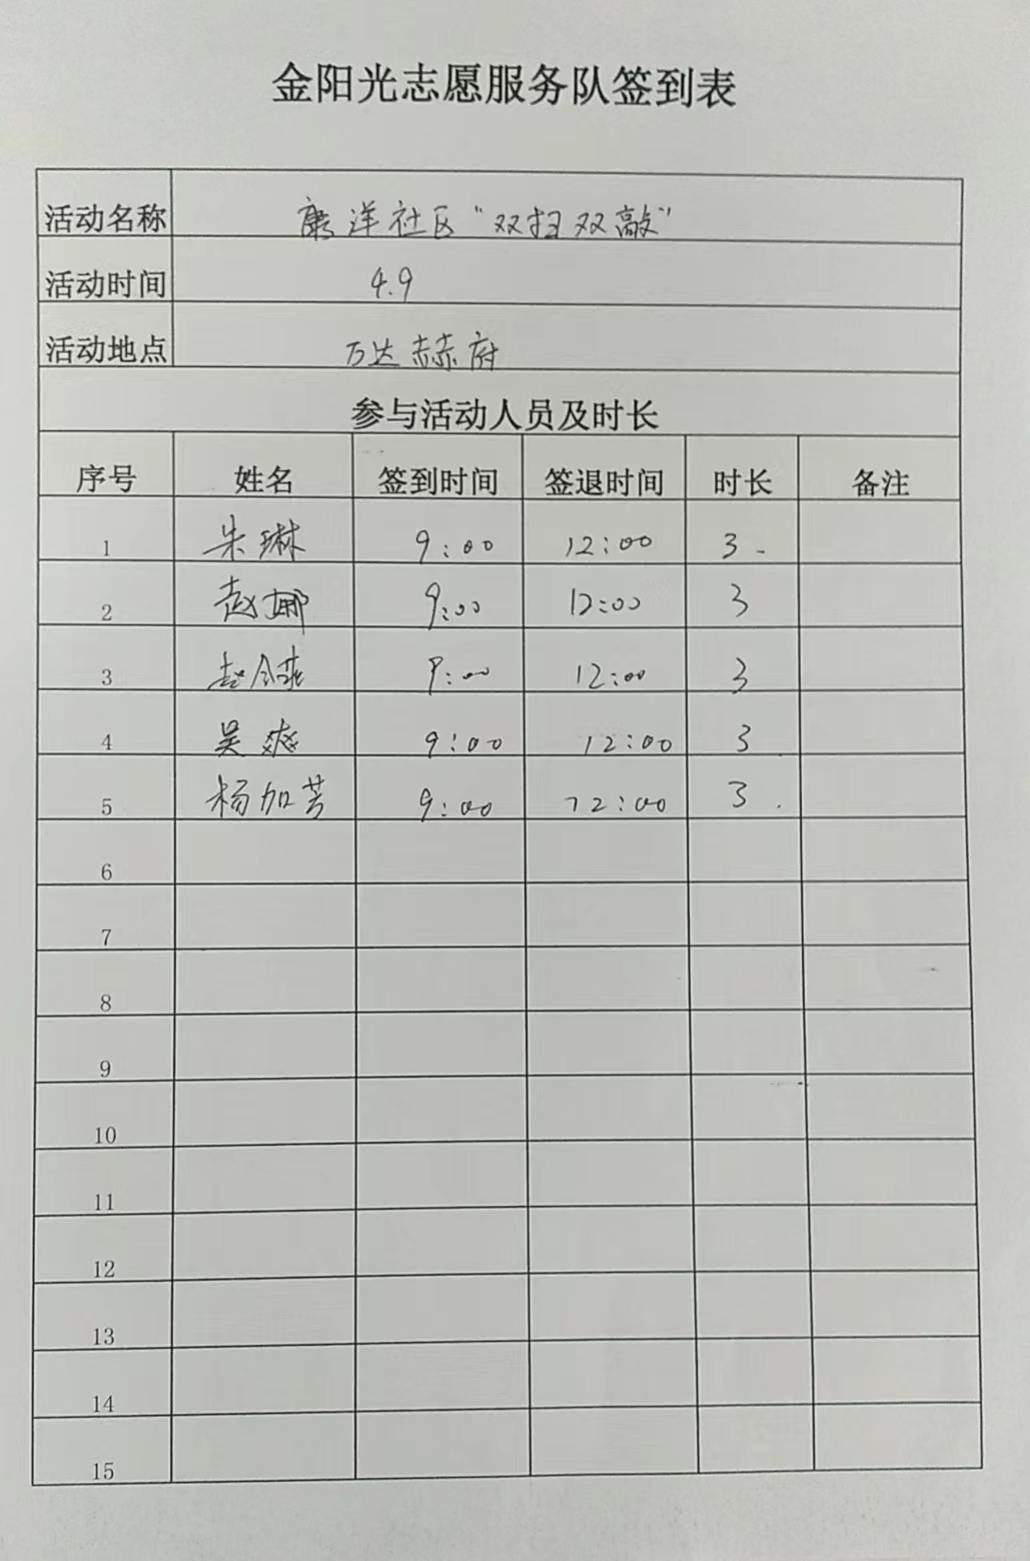 金阳光志愿服务队签到表
活动名称 康洋社区“双扫双敲”
活动时间 4.9
活动地点 万达赫府
参与活动人员及时长
序号 姓名 签到时间 签退时间 时长 备注
1 朱琳 9:00 12:00 3
2 赵娜 9:00 12:00 3
3 赵 9:00 12:00 3
4 吴爽 9:00 12:00 3
5 杨加芳 9:00 12:00 3
6
7
8
9
10
11
12
13
14
15